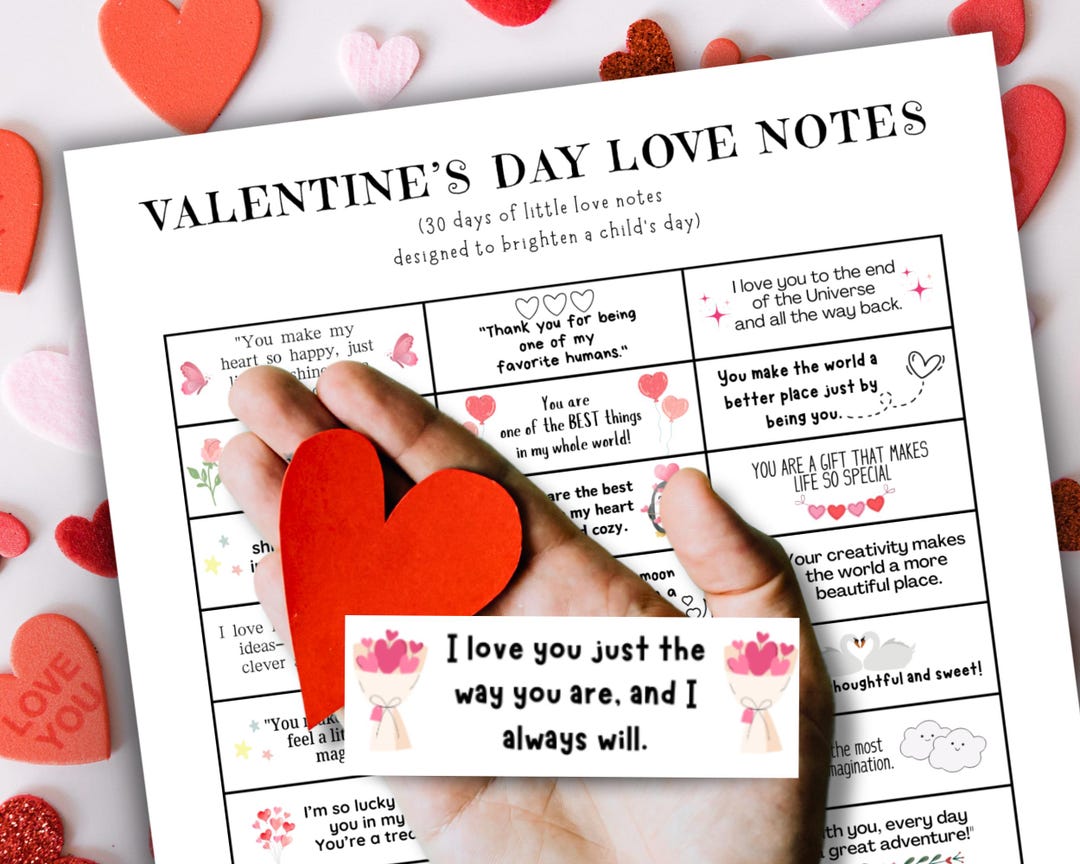 VALENTINE'S DAY LOVE NOTES
(30 days of little love notes
designed to brighten a child's day)
"You make my
heart so happy, just
"Thank you for being
one of my
favorite humans."
I love you to the end
of the Universe
and all the way back.
You are
one of the BEST things
in my whole world!
You make the world a
better place just by
being you.
are the best
my heart
cozy.
YOU ARE A GIFT THAT MAKES
LIFE SO SPECIAL
moon
a
Your creativity makes
the world a more
beautiful place.
I love
ideas—
clever
thoughtful and sweet!
"You
feel a
the most
imagination.
I'm so lucky
you in my
You're a
you, every day
great adventure!"
I love you just the
way you are, and I
always will.
LOVE
YOU